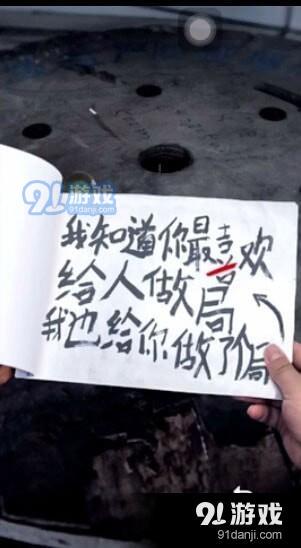 91游戏
91danji.com
我知道你最喜欢
给人做局
我也给你做了局
91游戏
91danji.com